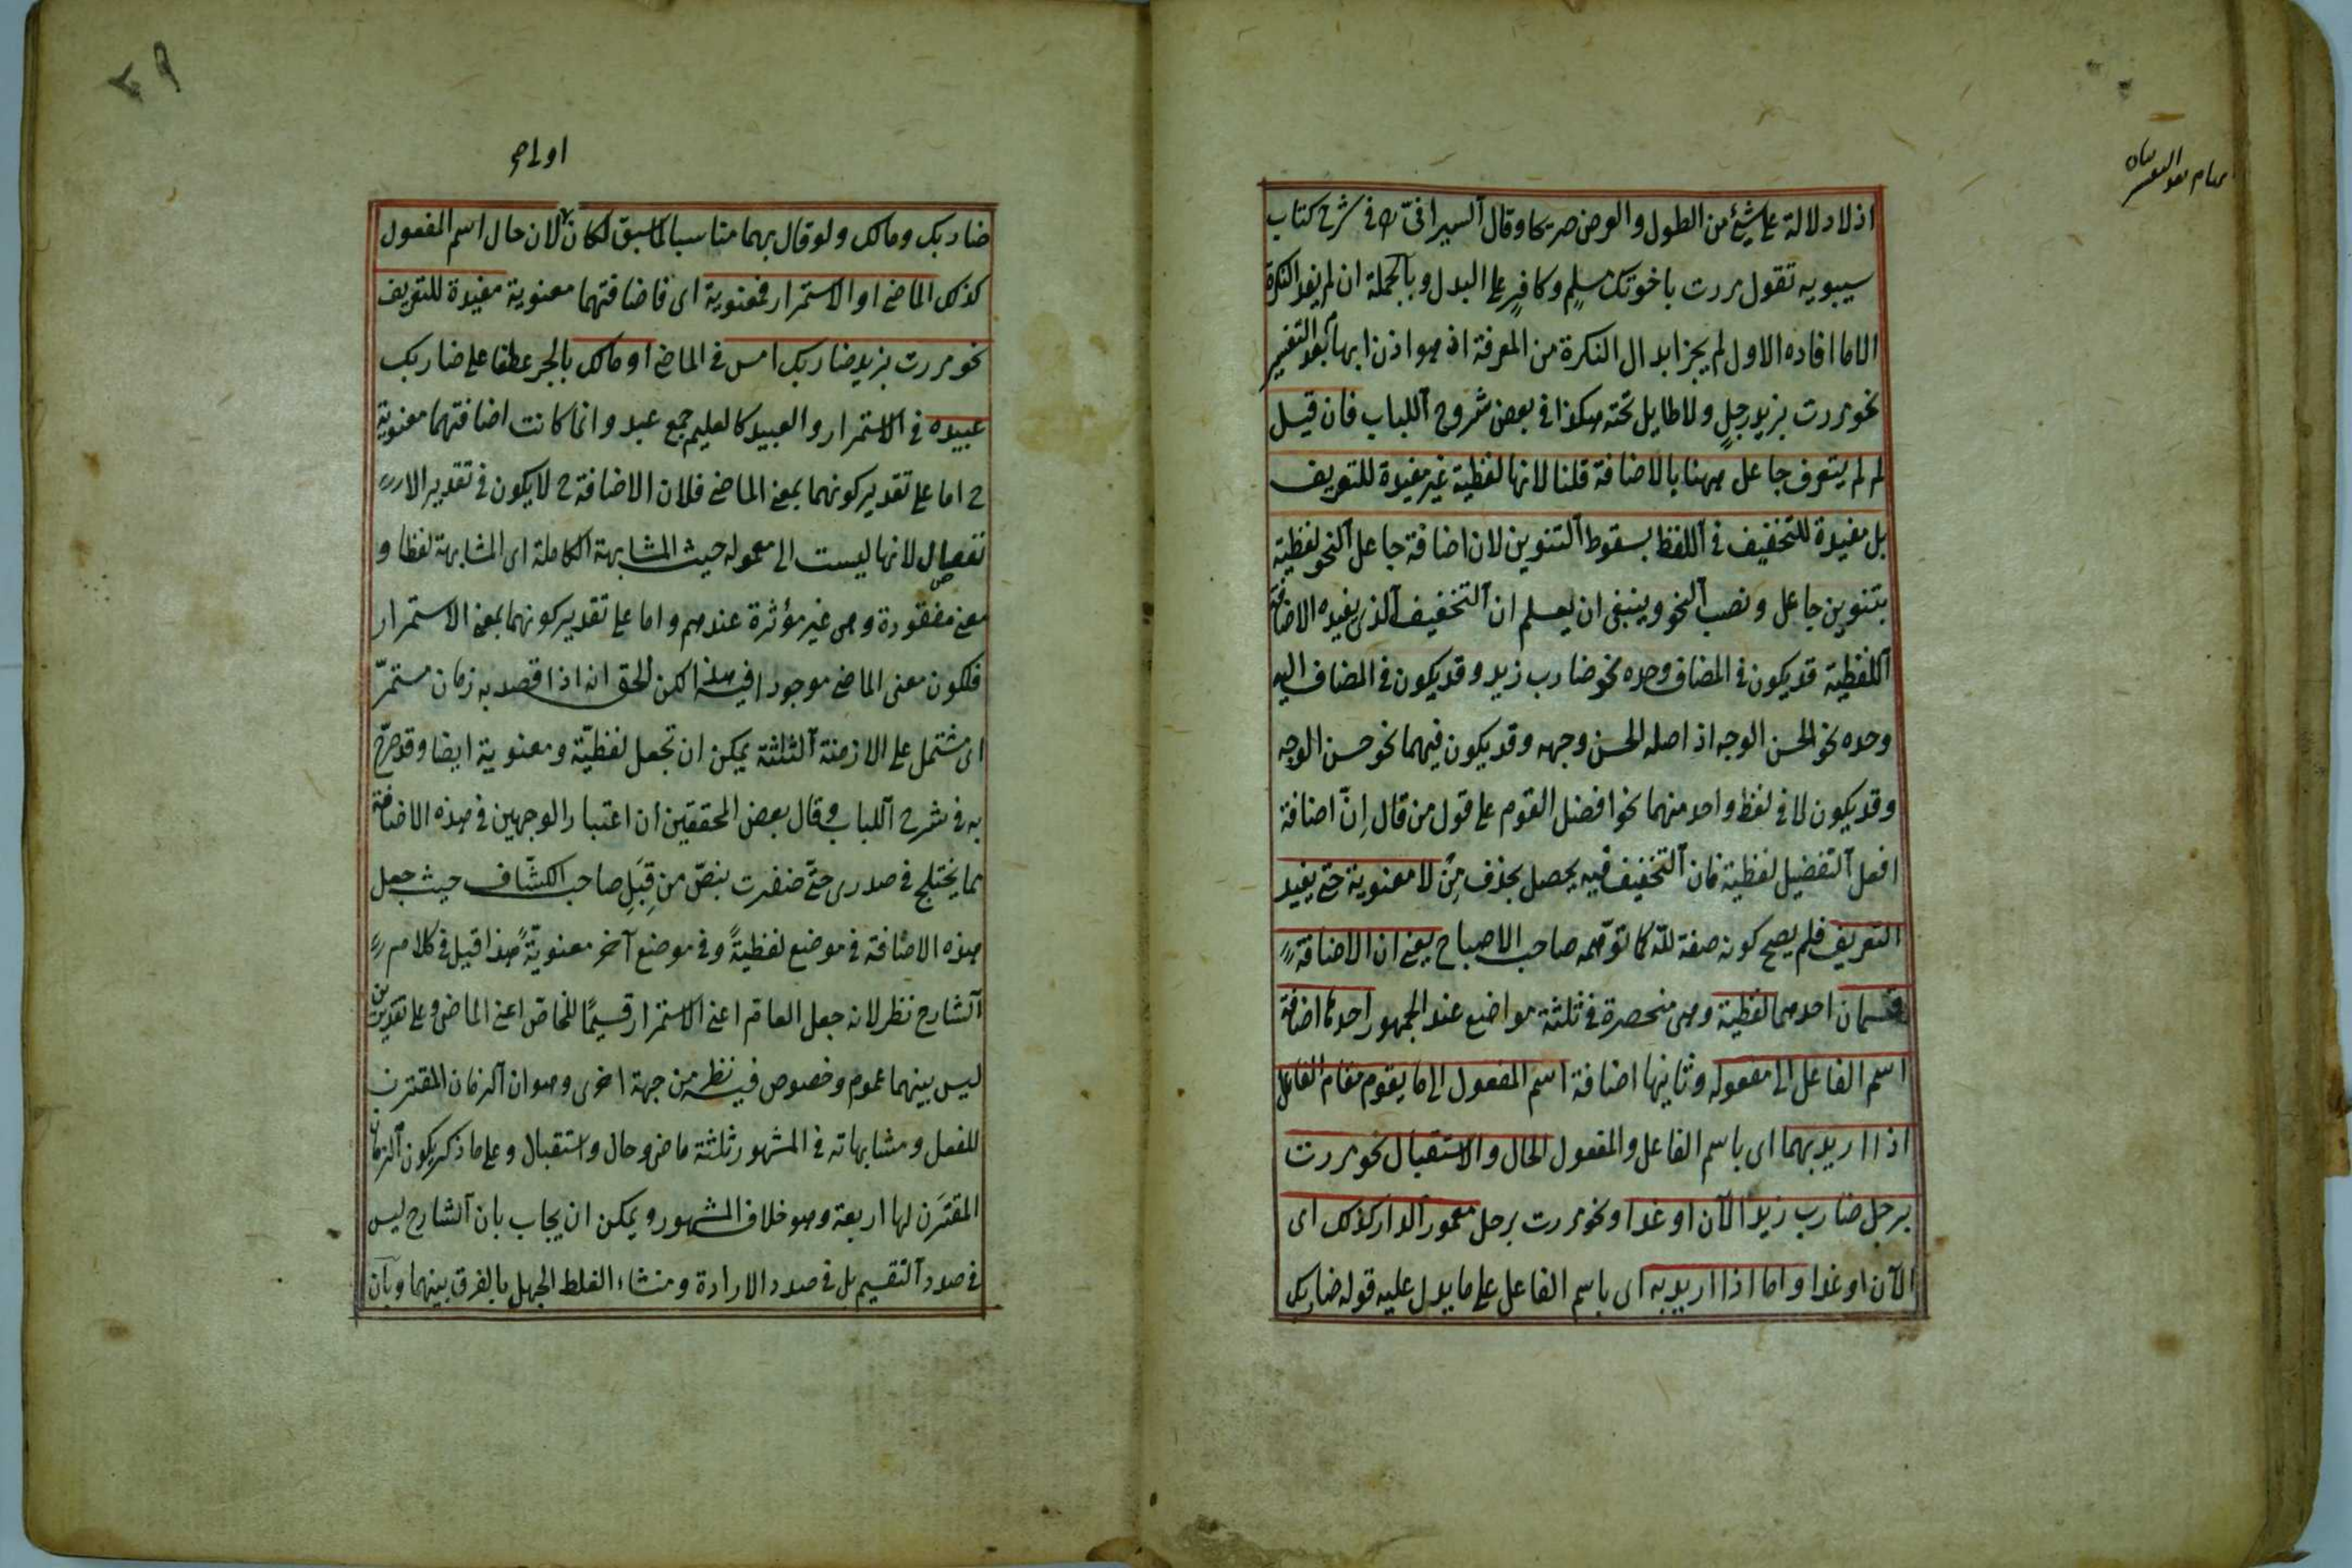 اذ لا دلالة على شيئ من الطول والعرض صريحا وقال السيرافى فى شرح كتاب
سيبويه تقول مررت باخوتك مسلمٍ وكافرٍ على البدل وبالجملة ان لم يفد النكرة
الا ما افاده الاول لم يجز ابدال النكرة من المعرفة اذ هو اذن ابهام بعد التفسير
نحو مررت بزيد رجلٍ ولا طايل تحته هكذا فى بعض شروح اللباب فان قيل
لم لم يتعرف جاعل ههنا بالاضافة قلنا لانها لفظية غير مفيدة للتعريف
بل مفيدة للتخفيف فى اللفظ بسقوط التنوين لان اضافة جاعل النحو لفظية
بتنوين جاعل ونصب النحو وينبغى ان يعلم ان التخفيف الذى يفيده الاضافة
اللفظية قد يكون فى المضاف وحده نحو ضارب زيد وقد يكون فى المضاف اليه
وحده نحو الحسن الوجه اذ اصله الحسن وجهه وقد يكون فيهما نحو حسن الوجه
وقد يكون لا فى لفظ واحد منهما نحو افضل القوم على قول من قال اِنّ اضافة
افعل التفضيل لفظية فان التخفيف فيه يحصل بحذف مِنْ لا معنوية حتى يفيد
التعريف فلم يصح كونه صفة للّه كما توهّمه صاحب الاصباح يعنى ان الاضافة
قسمان احدهما لفظية وهى منحصرة فى ثلثة مواضع عند الجمهور احدها اضافة
اسم الفاعل الى مفعوله وثانيها اضافة اسم المفعول الى ما يقوم مقام الفاعل
اذا اريد بهما اى باسم الفاعل والمفعول الحال والاستقبال نحو مررت
برجل ضارب زيد الآن او غدا ونحو مررت برجل معمور الدار كذلك اى
الآن او غدا واما اذا اريد به اى باسم الفاعل على ما يدل عليه قوله ضاربك
٣٩
اولى صح
ضاربك ومالك ولو قال بهما مناسبا لما سبق لكان لان حال اسم المفعول
كذلك الماضى او الاستمرار فمعنوية اى فاضافتهما معنوية مفيدة للتعريف
نحو مررت بزيد ضاربك امس فى الماضى او مالك بالجر عطفا على ضاربك
عبيده فى الاستمرار والعبيد كالعليم جمع عبد وانما كانت اضافتهما معنوية
ح اما على تقدير كونهما بمعنى الماضى فلان الاضافة ح لا يكون فى تقدير
نفصال لانها ليست الى معموله حيث المشابهة الكاملة اى المشابهة لفظا و
معنى مفقودة وهى غير مؤثرة عندهم واما على تقدير كونهما بمعنى الاستمرار
فلكون معنى الماضى موجودا فيه هذا لكن الحق انه اذا قصد به زمان مستمرّ
اى مشتمل على الازمنة الثلثة يمكن ان تجعل لفظيّة ومعنوية ايضا وقد صرّح
به فى شرح اللباب وقال بعض المحققين ان اعتبار الوجهين فى هذه الاضافة
مما يختلج فى صدرى حتّى ضفرت بنصّ من قِبَلِ صاحب الكشّاف حيث جعل
هذه الاضافة فى موضع لفظيةً وفى موضع آخر معنويّةً هذا قيل فى كلام
الشارح نظر لانه جعل العام اعنى الاستمرار قسيمًا للخاصّ اعنى الماضى وعلى تقدير ان
ليس بينهما عموم وخصوص فيه نظر من جهة اخرى وهو ان الزمان المقترن
للفعل ومشابهاته فى المشهور ثلثة ماض وحال واستقبال وعلى ما ذكر يكون الزمان
المقترَن لها اربعة وهو خلاف المشهور ويمكن ان يجاب بان الشارح ليس
فى صدد التقسيم بل فى صدد الارادة ومنشاء الغلط الجهل بالفرق بينهما وبان